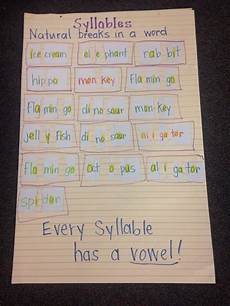 Syllables
Natural breaks in a word
Ice cream el e phant rab bit
hip po mon key Fla min go
Fla min go di no saur mon key
jell y fish di no saur al i ga tor
Fla min go oct o pus al i ga tor
spi der
Every Syllable
has a vowel!